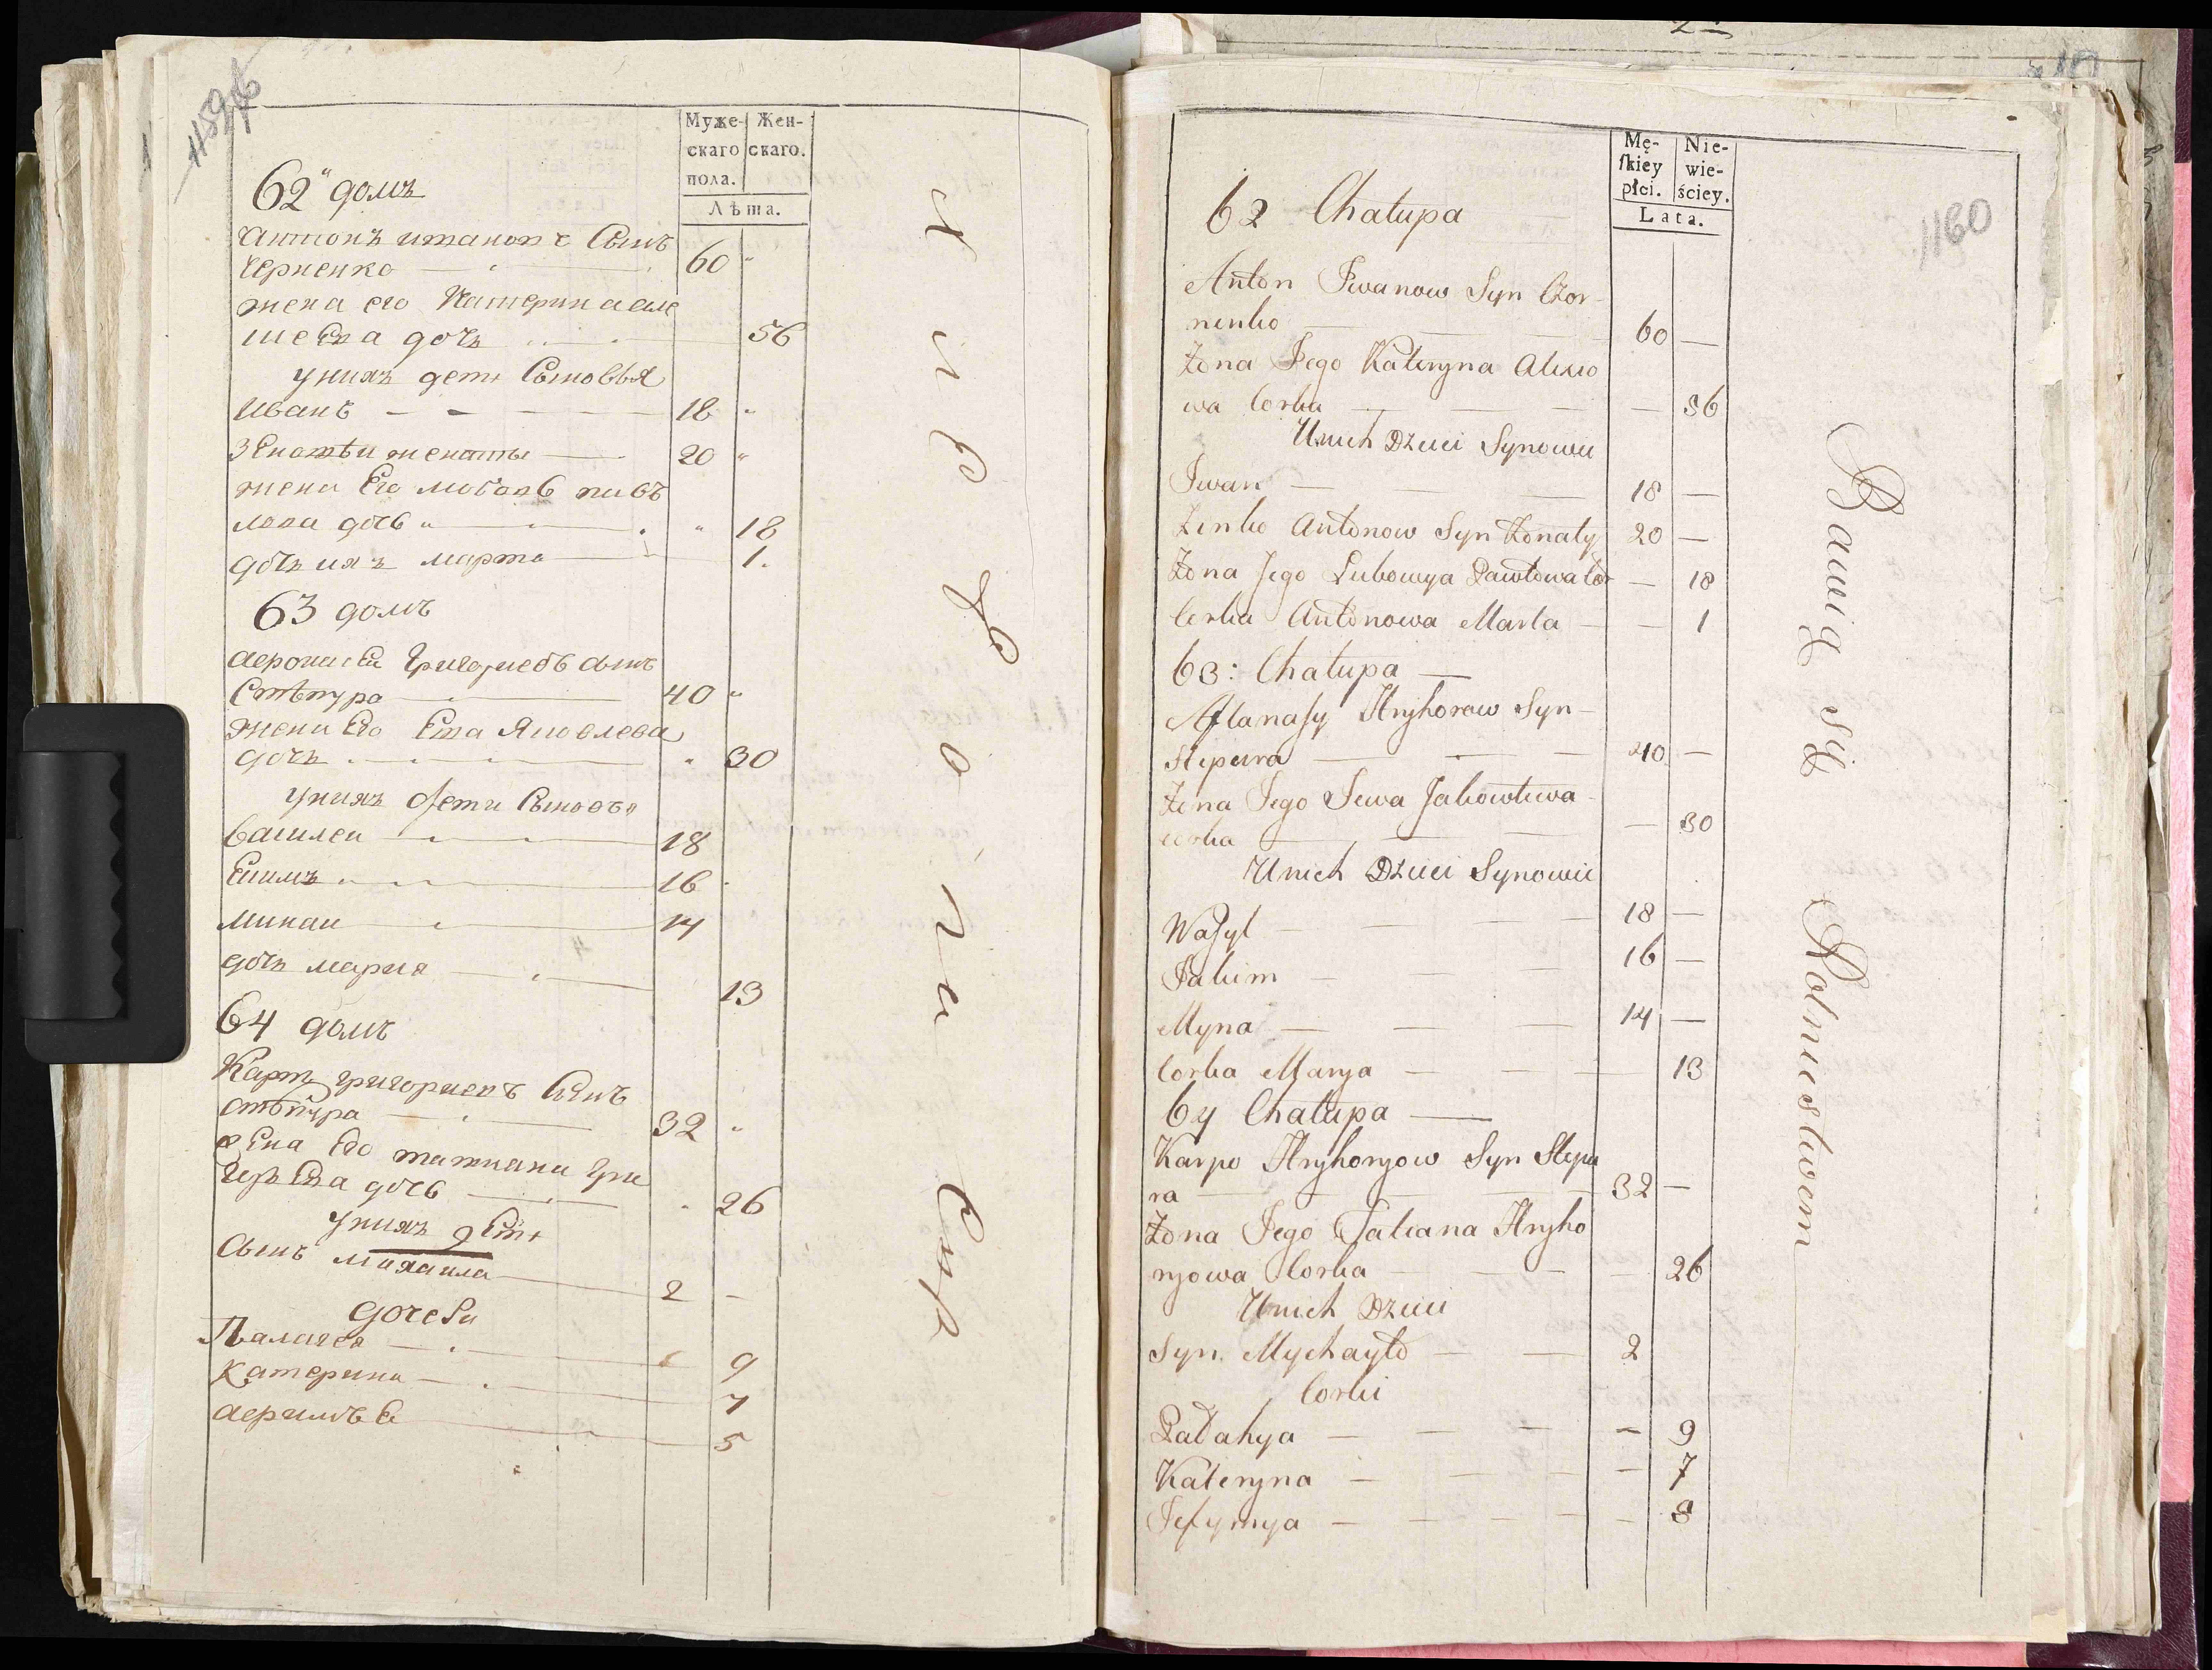 Муже- Жен-
скаго скаго.
пола.
Лѣта.
62 домъ
Антонъ Ивановъ Сынъ
Черненко 60
жена его Катерина Але
шева дочъ 56
у нихъ дети Сыновья
Иванъ 18
женатыи 20
жена Его пав
лова дочь 18
дочъ ихъ марта 1.
63 домъ
Григориевъ сынъ
Стѣпура 40
жена Его Ева Яковлева
дочъ 30
у нихъ дети Сыновья
василеи 18
Екимъ 16
минаи 14
дочъ мария 13
64 домъ
Карпъ григориевъ Сынъ
стѣпура 32
жена Его татияна Гри
горьева дочь 26
у нихъ дети
Сынъ михаила 2
дочери
Палагея 9
Катерина 7
5
хлебопа
1160
Mę- Nie-
ſkiey wie-
płci. ściey.
Lata.
62 Chałupa
Anton Iwanow Syn Czor-
nenko 60
Żona Jego Kateryna Alexio
wa Corka 56
U nich Dzieci Synowie
Iwan 18
Zinko Antonow Syn Żonaty 20
Żona Jego Lubowya Pawłowa Cor 18
Corka Antonowa Marta 1
63: Chałupa
Aftanaſy Hryhorow Syn
Stepura 40
Żona Jego Jewa Jakowlewa
corka 30
U nich Dzieci Synowie
Waſyl 18
Jakim 16
Myna 14
Corka Marya 13
64 Chałupa
Karpo Hryhoryow Syn Stepu
ra 32
Żona Jego Tatiana Hryho
ryowa Corka 26
U nich Dzieci
Syn Mychayło 2
Corki
Pałahya 9
Kateryna 7
Jefymya 5
Bawią się Rolnictwem